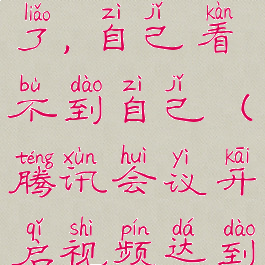 liǎo zì jǐ kàn
了，自己看
bù dào zì jǐ
不到自己（
téng xùn huì yì kāi
腾讯会议开
qǐ shì pín dá dào
启视频达到